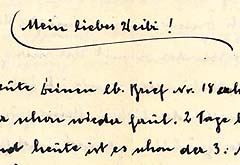 Mein liebes Weibi!
eute Deinen lb. Brief Nr. 18 erh
schon wieder faul. 2 Tage
nd heute ist es schon der 3.